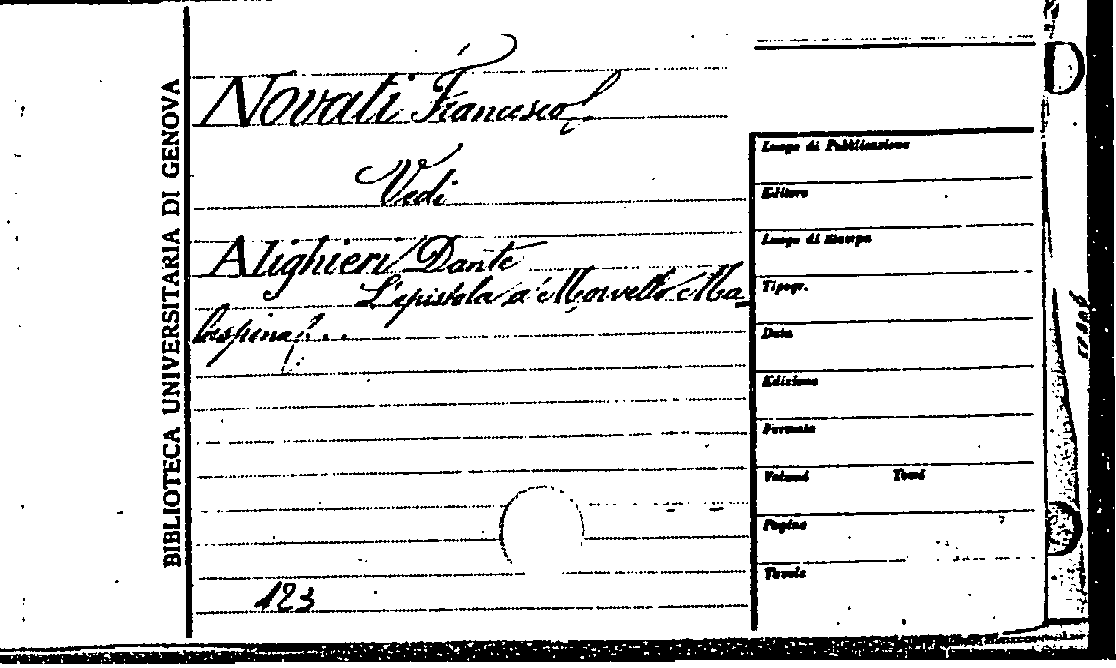 BIBLIOTECA UNIVERSITARIA DI GENOVA
Novati Francesco
Vedi
Alighieri Dante
L'epistola a Morvello Ma
laspina ...
123
Luogo di Pubblicazione
Editore
Luogo di Stampa
Tipogr.
Data
Edizione
Formato
Volumi Tomi
Pagine
Tavole